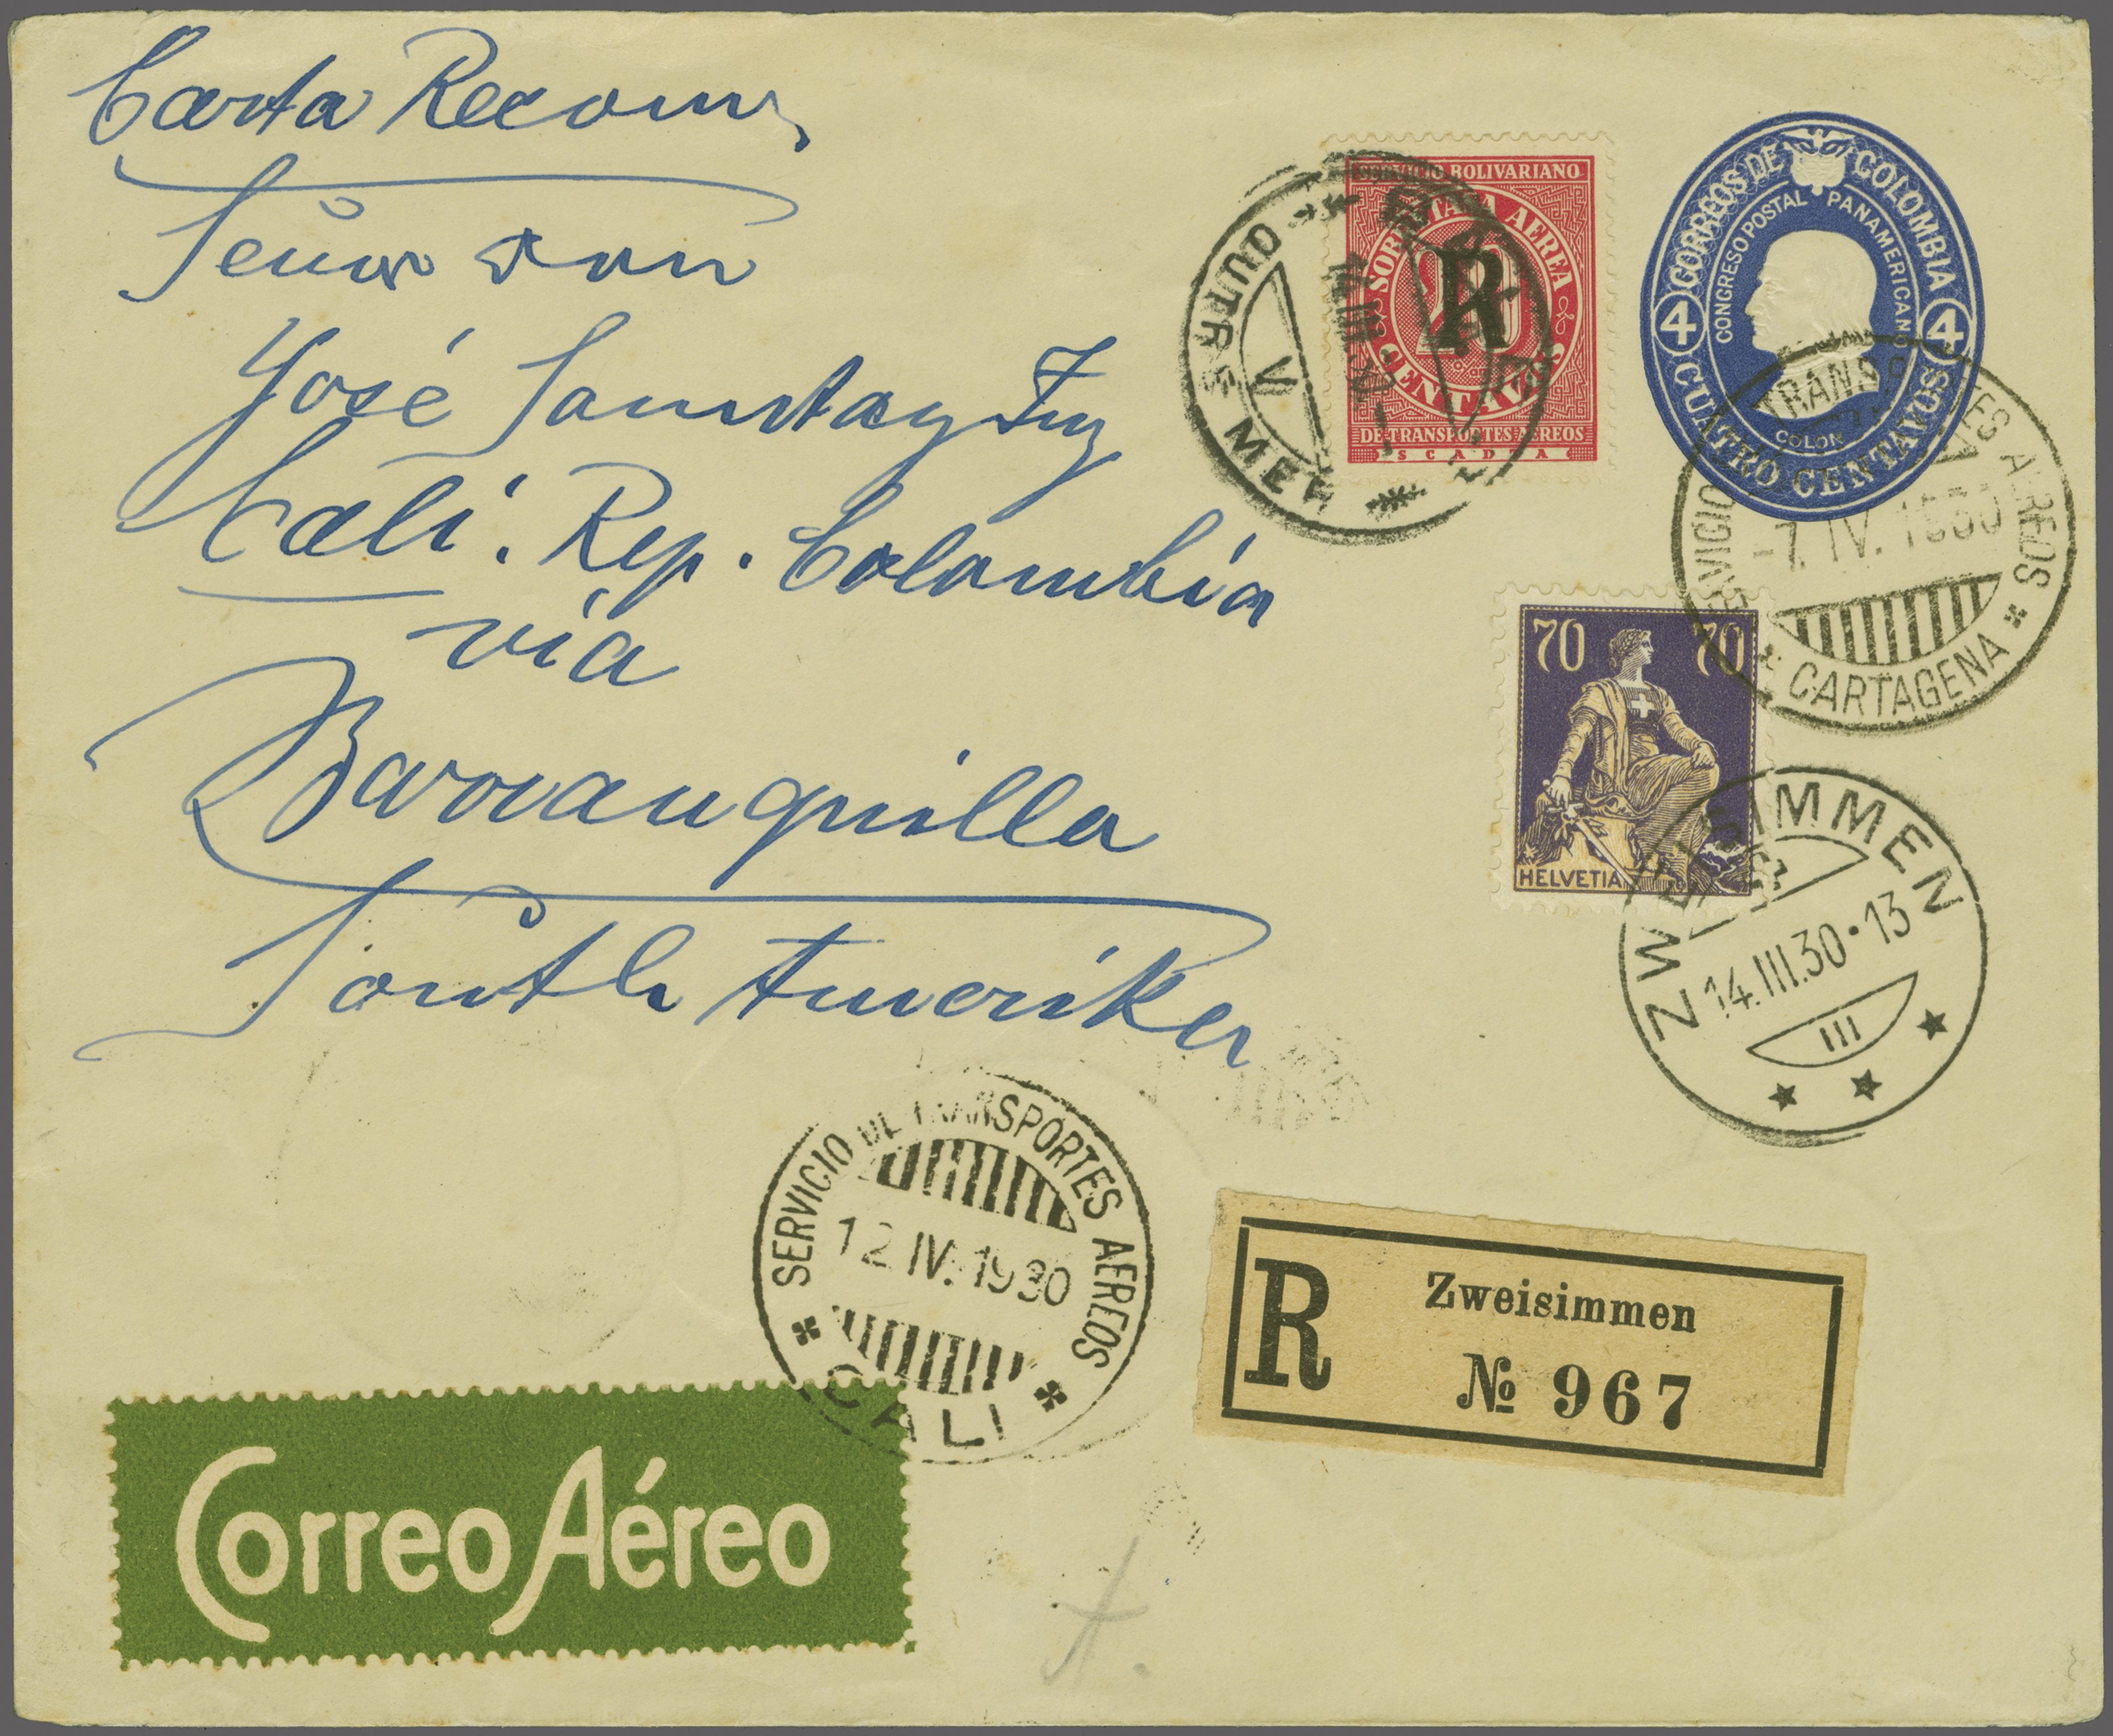 Carta Recom
Señor don
José Sonntag Fnz
Cali. Rep. Colombia
via
Barranquilla
South Amerika
SERVICIO BOLIVARIANO
SOBRETASA AEREA
20
R
CENTAVOS
DE TRANSPORTES AEREOS
SCADTA
V
CORREOS DE COLOMBIA
CONGRESO POSTAL PANAMERICANO
4 4
COLON
CUATRO CENTAVOS
SERVICIO TRANSPORTES AEREOS
-7. IV. 1930
CARTAGENA
70 70
HELVETIA
ZWEISIMMEN
14.III.30•13
III
SERVICIO DE TRANSPORTES AEREOS
12 IV. 1930
CALI
R Zweisimmen
№ 967
Correo Aéreo
A.